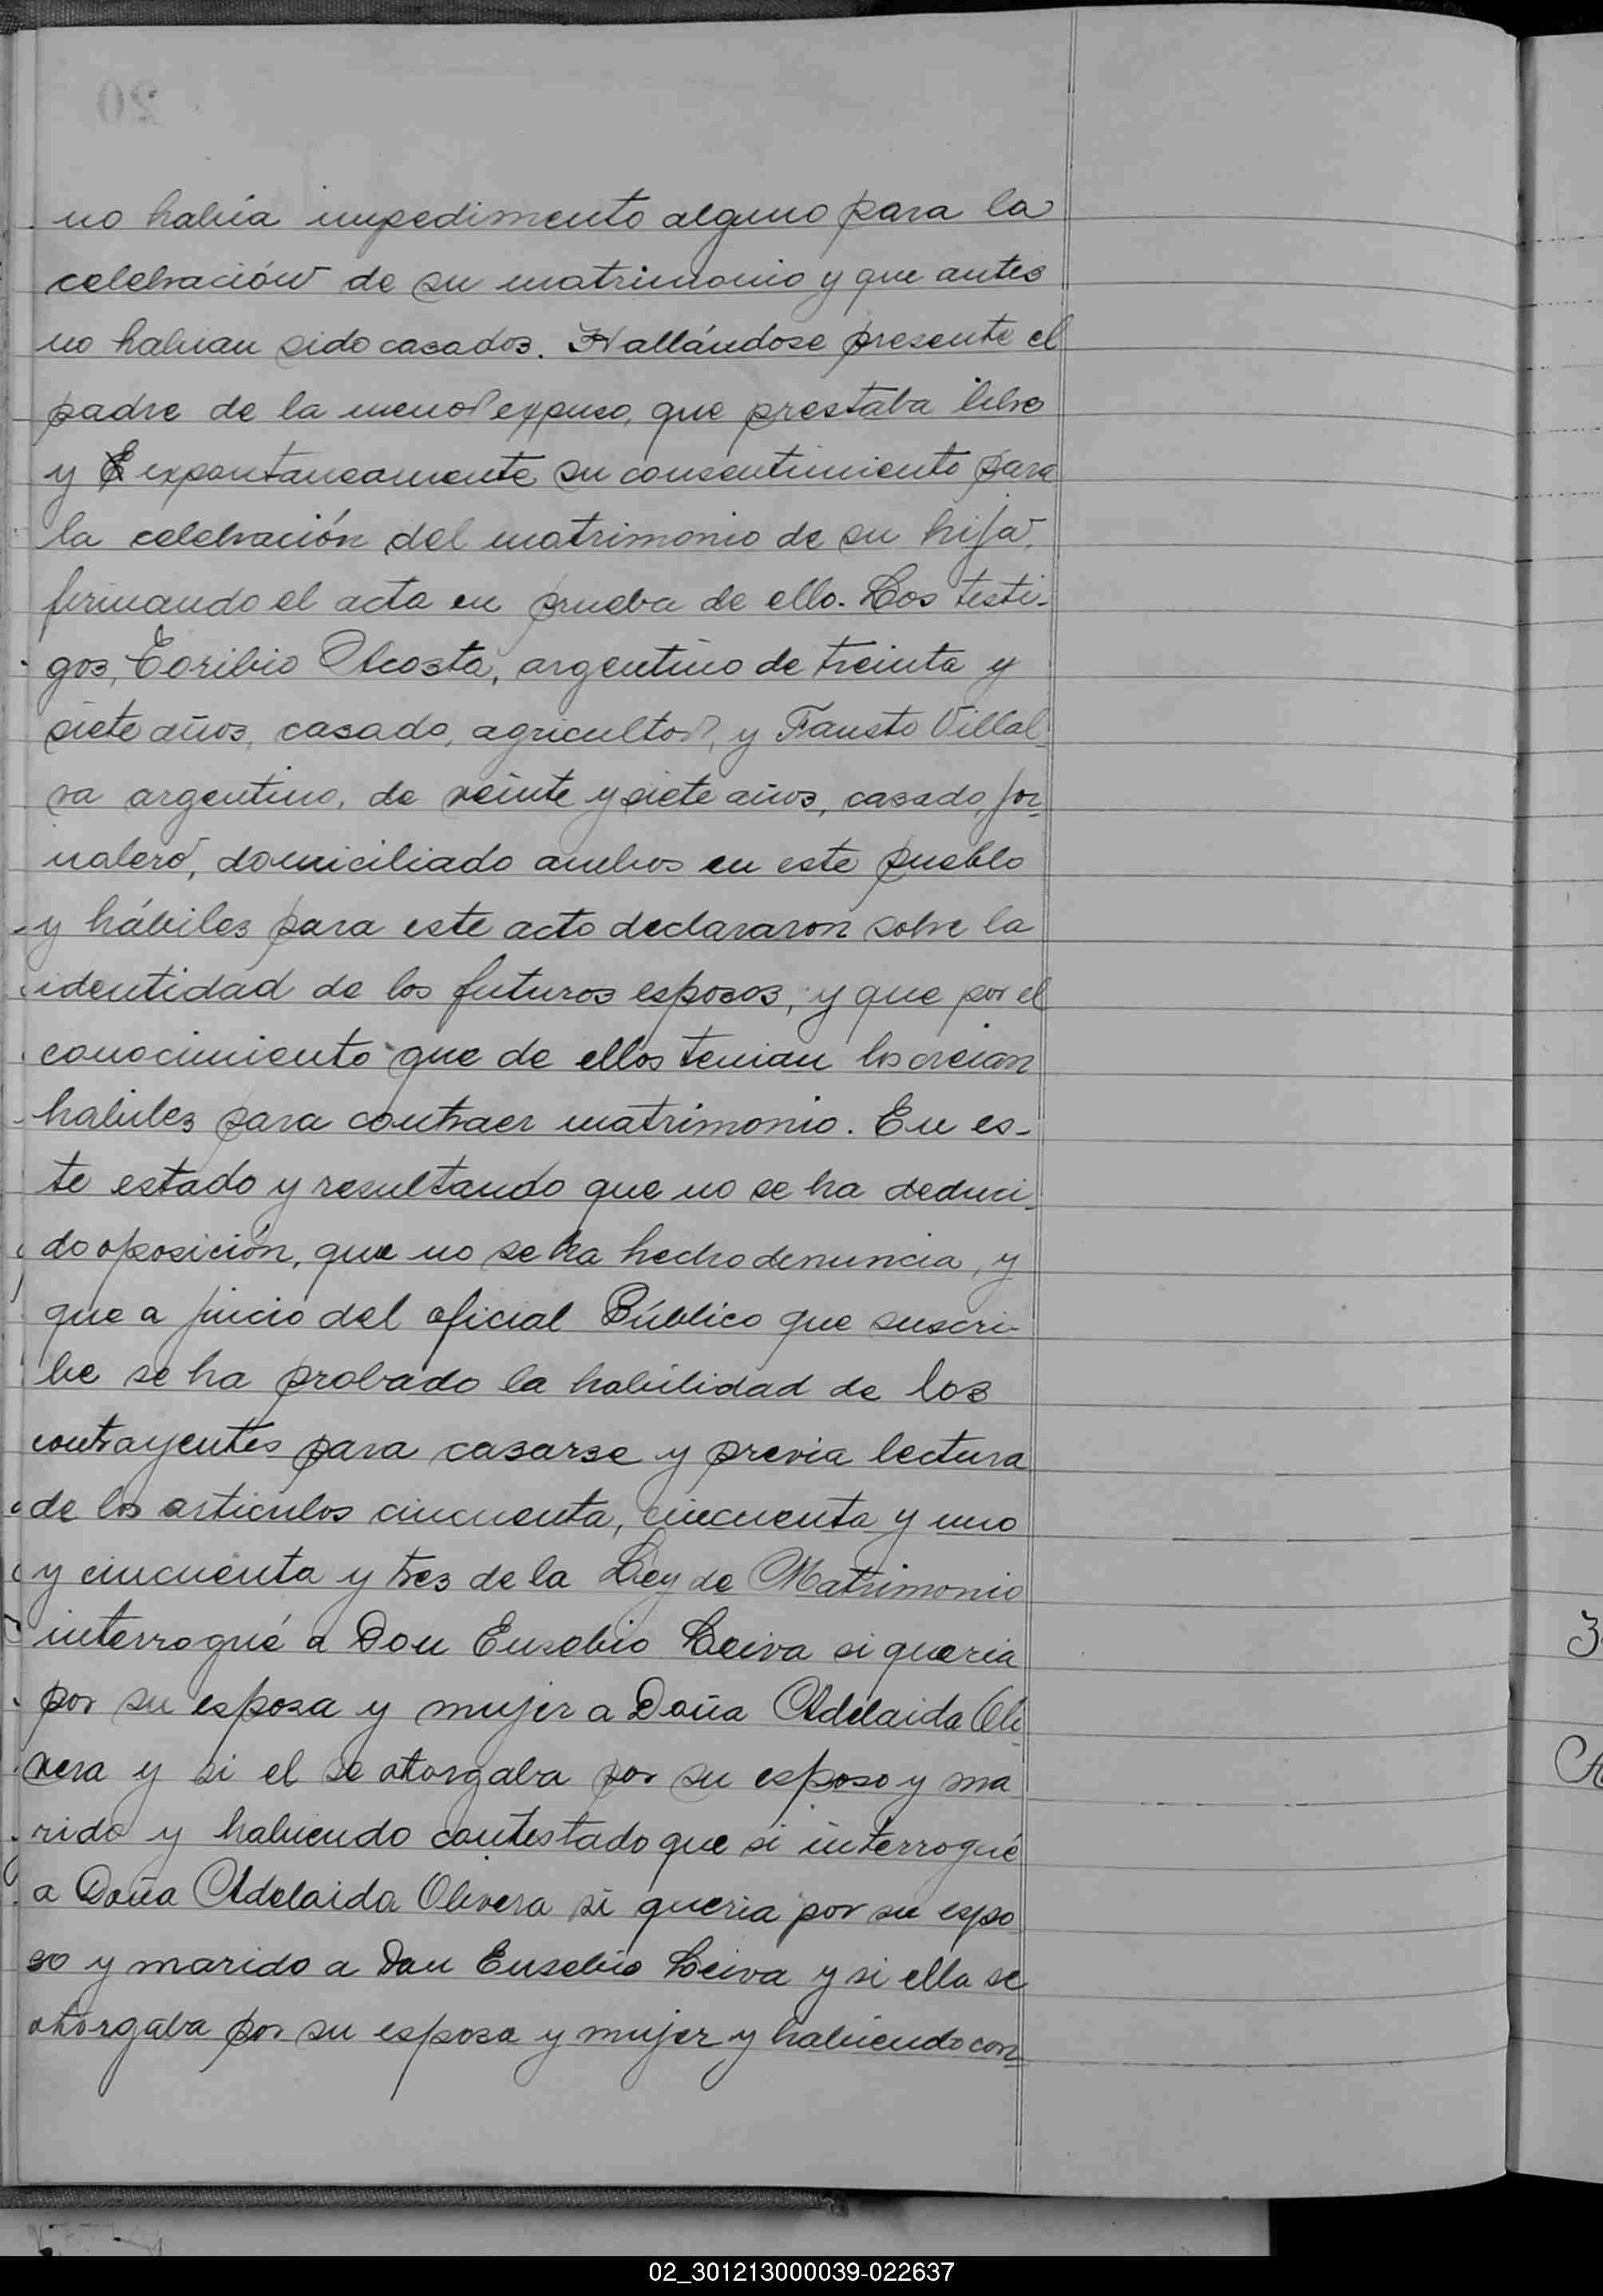 20
no había impedimento alguno para la
celebración de su matrimonio y que antes
no habian sido casados. Hallándose presente el
padre de la menor expuso, que prestaba libre
y E expontaneamente su consentimiento para
la celebración del matrimonio de su hija,
firmando el acta en prueba de ello. Los testi-
gos, Toribio Acosta, argentino de treinta y
siete años, casado, agricultor, y Fausto Villal-
va argentino, de veinte y siete años, casado, jor-
nalero, domiciliado ambos en este pueblo
y hábiles para este acto declararon sobre la
identidad de los futuros esposos, y que por el
conocimiento que de ellos tenian los creian
habiles para contraer matrimonio. En es-
te estado y resultando que no se ha deduci-
do oposición, que no se ha hecho denuncia, y
que a juicio del oficial Público que suscri-
be se ha probado la habilidad de los
contrayentes para casarse y previa lectura
de los articulos cincuenta, cincuenta y uno
y cincuenta y tres de la Ley de Matrimonio
interrogué a Don Eusebio Leiva si queria
por su esposa y mujer a Doña Adelaida Oli-
vera y si el se otorgaba por su esposo y ma
rido y habiendo contestado que si interrogué
a Doña Adelaida Olivera si queria por su espo
so y marido a Don Eusebio Leiva y si ella se
otorgaba por su esposa y mujer y habiendo con-
3
A
02_301213000039-022637